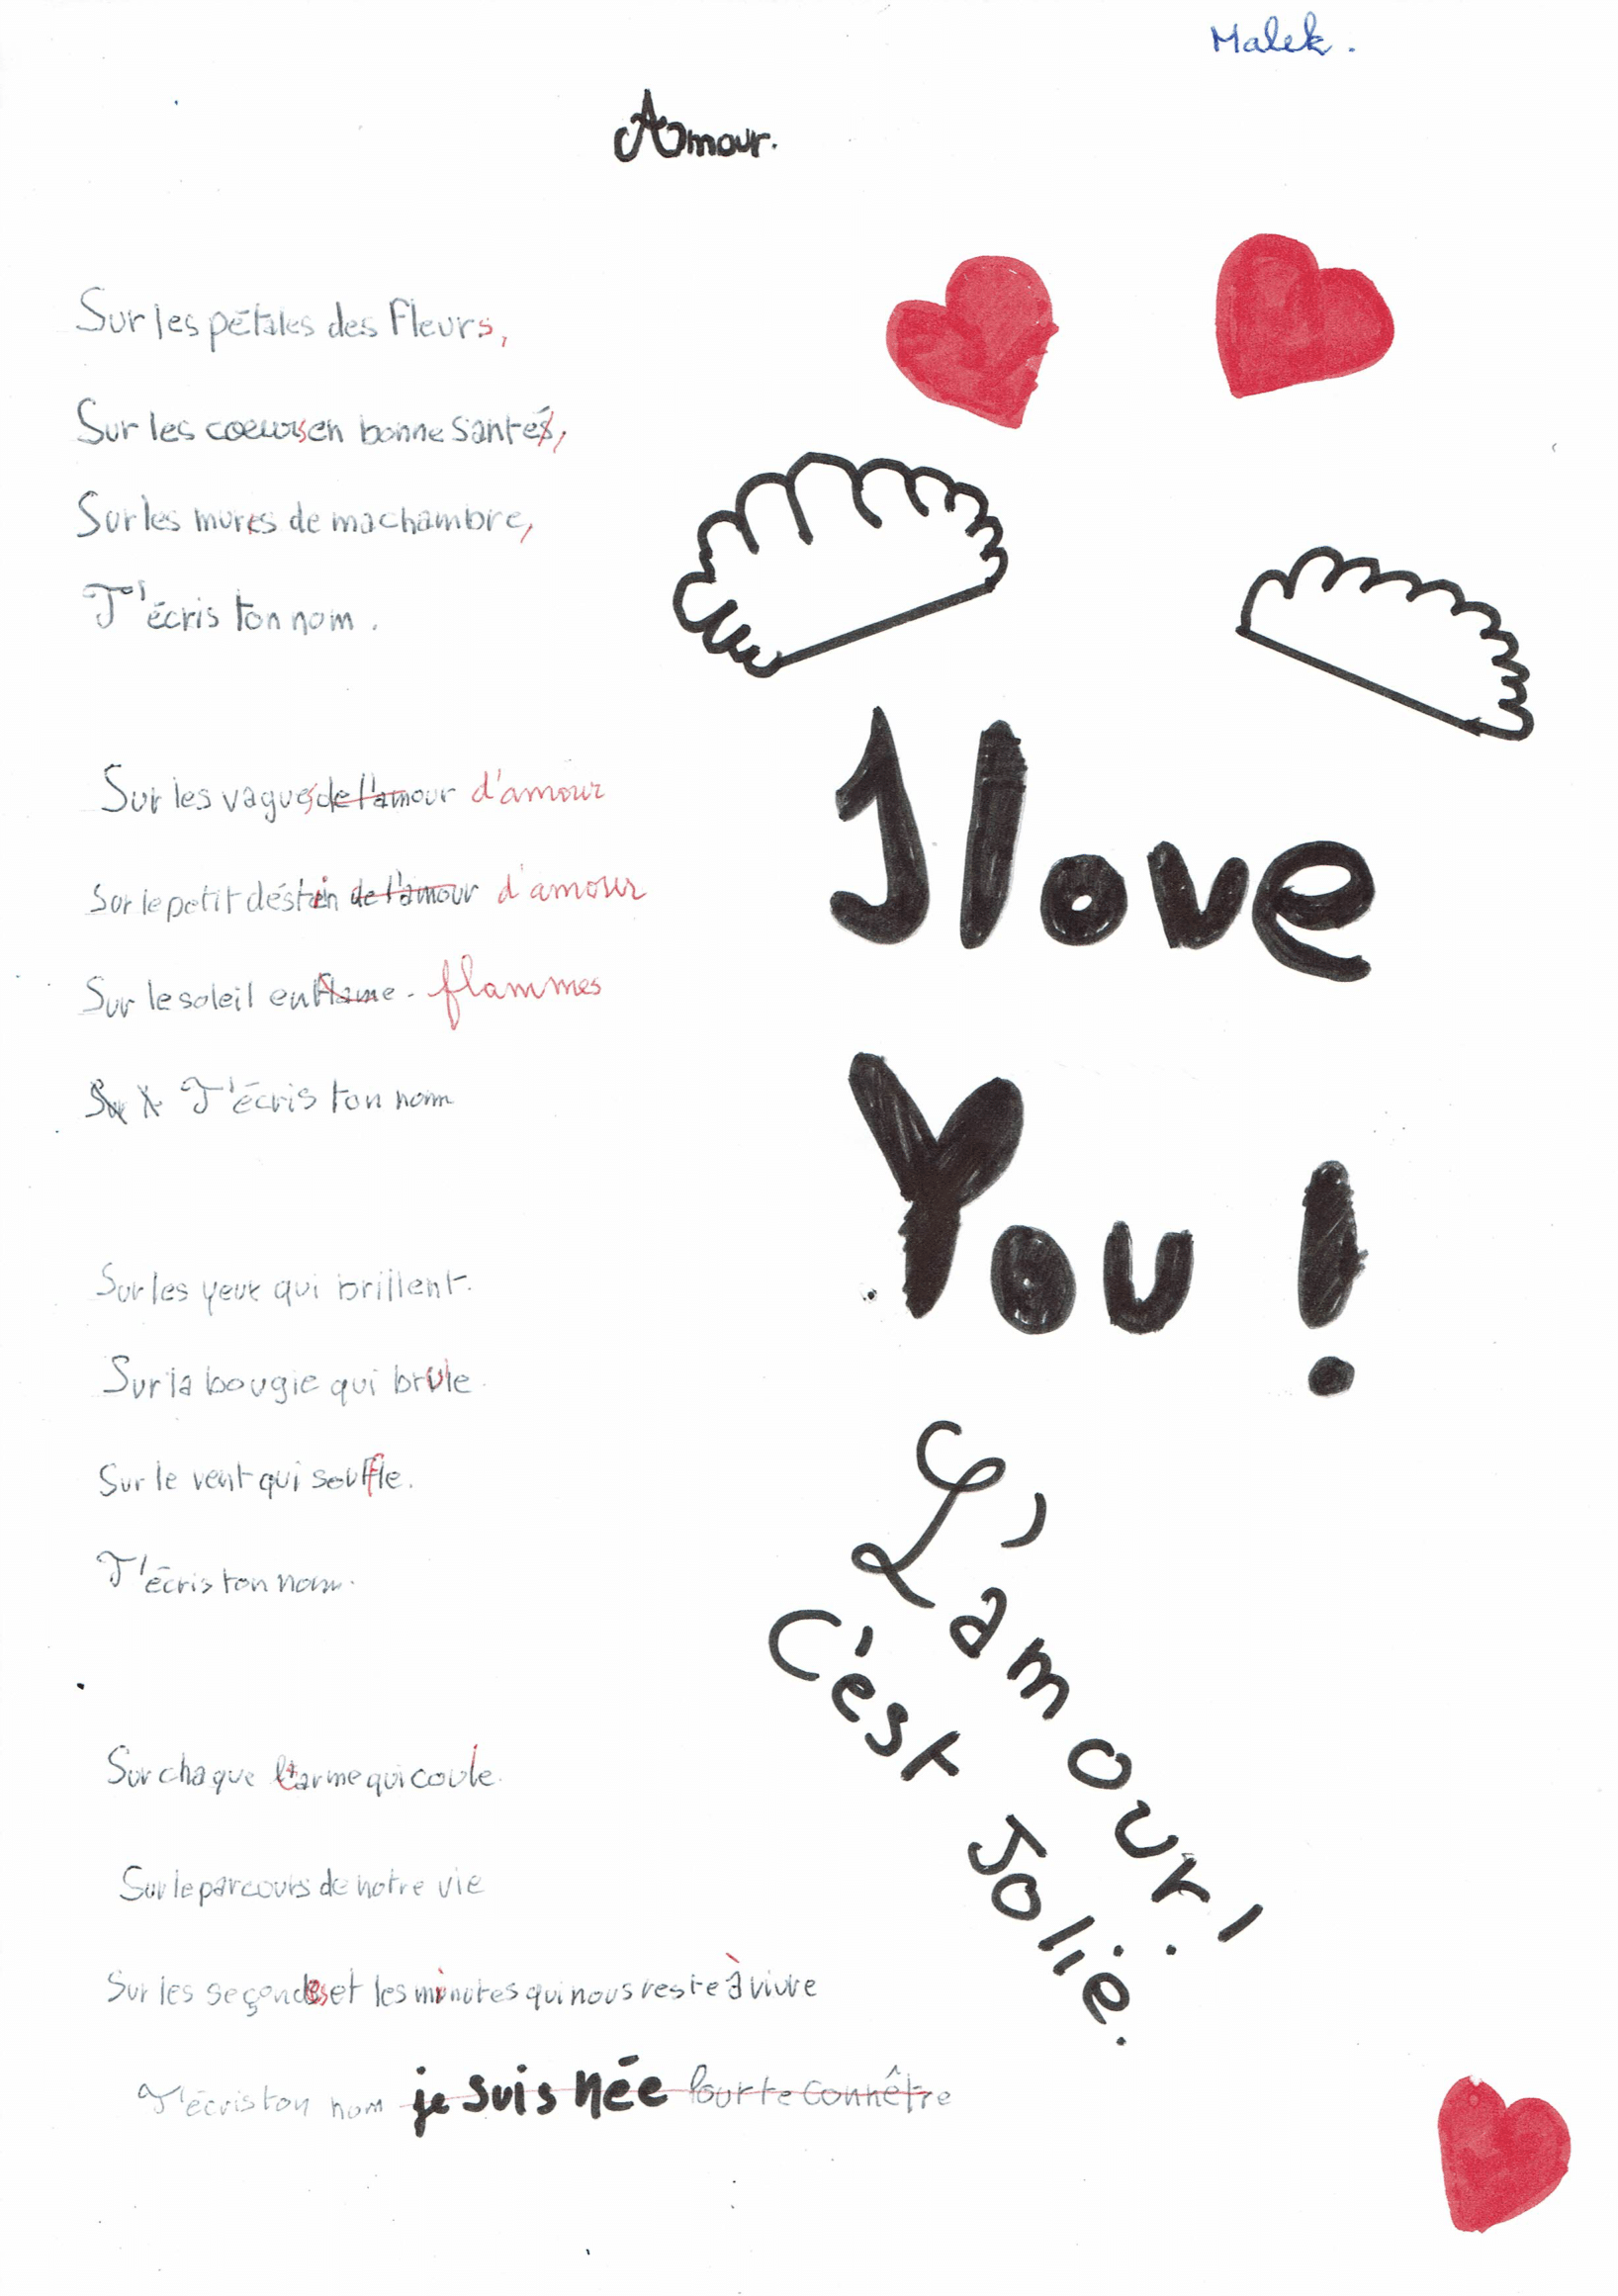 Malek.
Amour.
Sur les pétales des fleurs,
Sur les coeurs en bonne santé,
Sur les murs de ma chambre,
J'écris ton nom.
Sur les vagues de l'amour d'amour
Sur le petit déstin de l'amour d'amour
Sur le soleil en flame. flammes
J'écris ton nom
Sur les yeux qui brillent.
Sur la bougie qui brule.
Sur le vent qui souffle.
J'écris ton nom.
Sur chaque larme qui coule.
Sur le parcours de notre vie
Sur les seçondes et les minutes qui nous reste à vivre
J'écris ton nom je suis née Pour te connêtre
I love
You !
L'amour !
C'est Jolie.